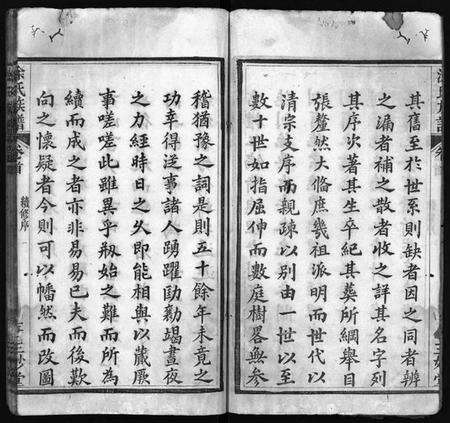 其舊至於世系則缺者因之同者辨
之漏者補之散者收之詳其名字列
其序次著其生卒紀其葬所綱舉目
張釐然大備庶幾祖派明而世代以
清宗支序而親疎以別由一世以至
數十世如指屈伸而數庭樹畧無參
稽猶豫之詞是則五十餘年未竟之
功幸得迋事諸人踴躍勷勷竭晝夜
之力經時日之久即能相與以蕆厥
事嗟嗟此雖異乎剏始之難而所為
續而成之者亦非易易已夫而後歎
向之懷疑者今則可以幡然而改圖
涂氏族譜
卷首
續修序